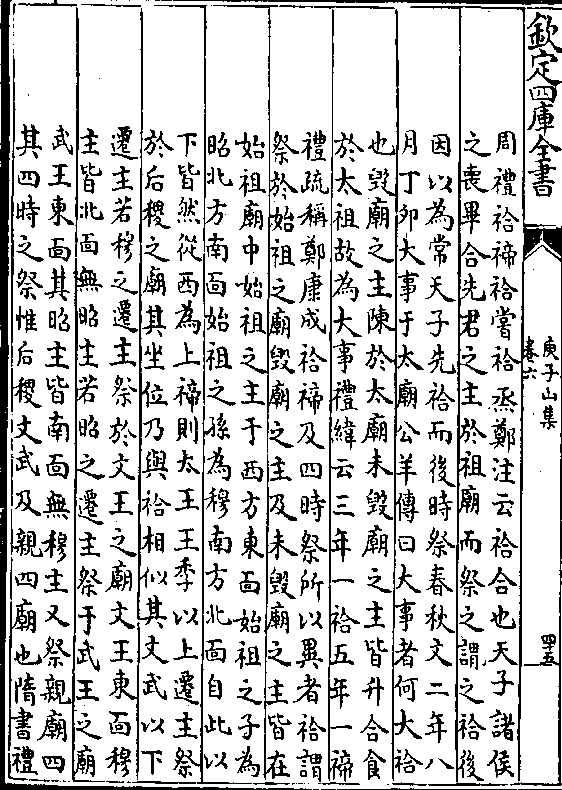 欽定四庫全書
庾子山集
卷六
四十五
周禮祫禘祫嘗祫烝鄭注云祫合也天子諸侯
之喪畢合先君之主於祖廟而祭之謂之祫後
因以為常天子先祫而後時祭春秋文二年八
月丁卯大事于太廟公羊傳曰大事者何大祫
也毀廟之主陳於太廟未毀廟之主皆升合食
於太祖故為大事禮緯云三年一祫五年一禘
禮疏稱鄭康成祫禘及四時祭所以異者祫謂
祭於始祖之廟毀廟之主及未毀廟之主皆在
始祖廟中始祖之主于西方東面始祖之子為
昭北方南面始祖之孫為穆南方北面自此以
下皆然從西為上禘則太王王季以上遷主祭
於后稷之廟其坐位乃與祫相似其文武以下
遷主若穆之遷主祭於文王之廟文王東面穆
主皆北面無昭主若昭之遷主祭于武王之廟
武王東面其昭主皆南面無穆主又祭親廟四
其四時之祭惟后稷文武及親四廟也隋書禮